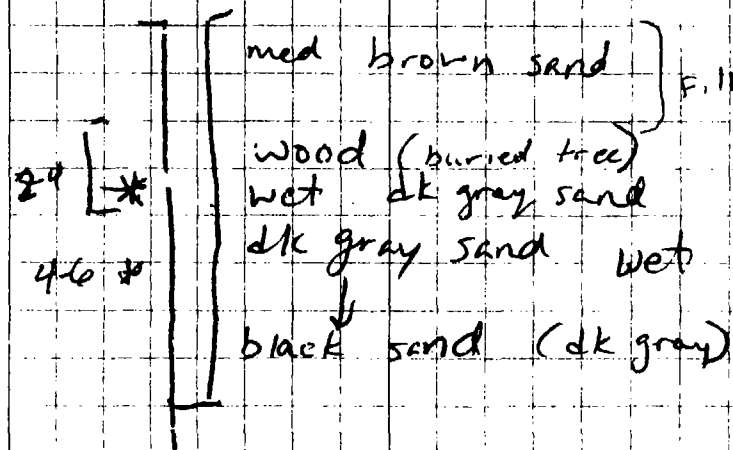 med brown sand
Fill
wood (buried tree)
2-4 * wet dk gray sand
dk gray sand wet
4-6 *
black sand (dk gray)